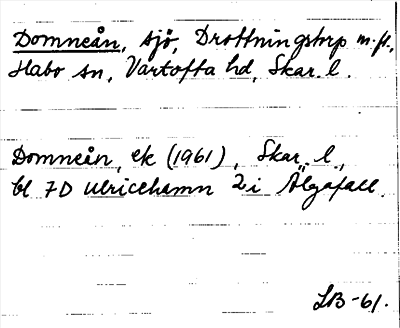 Domneån, sjö, Drottningstorp m.fl.,
Habo sn, Vartofta hd, Skar. l.
Domneån, ek (1961), Skar. l.,
bl 7D Ulricehamn 2i Älgafall.
LB-61.